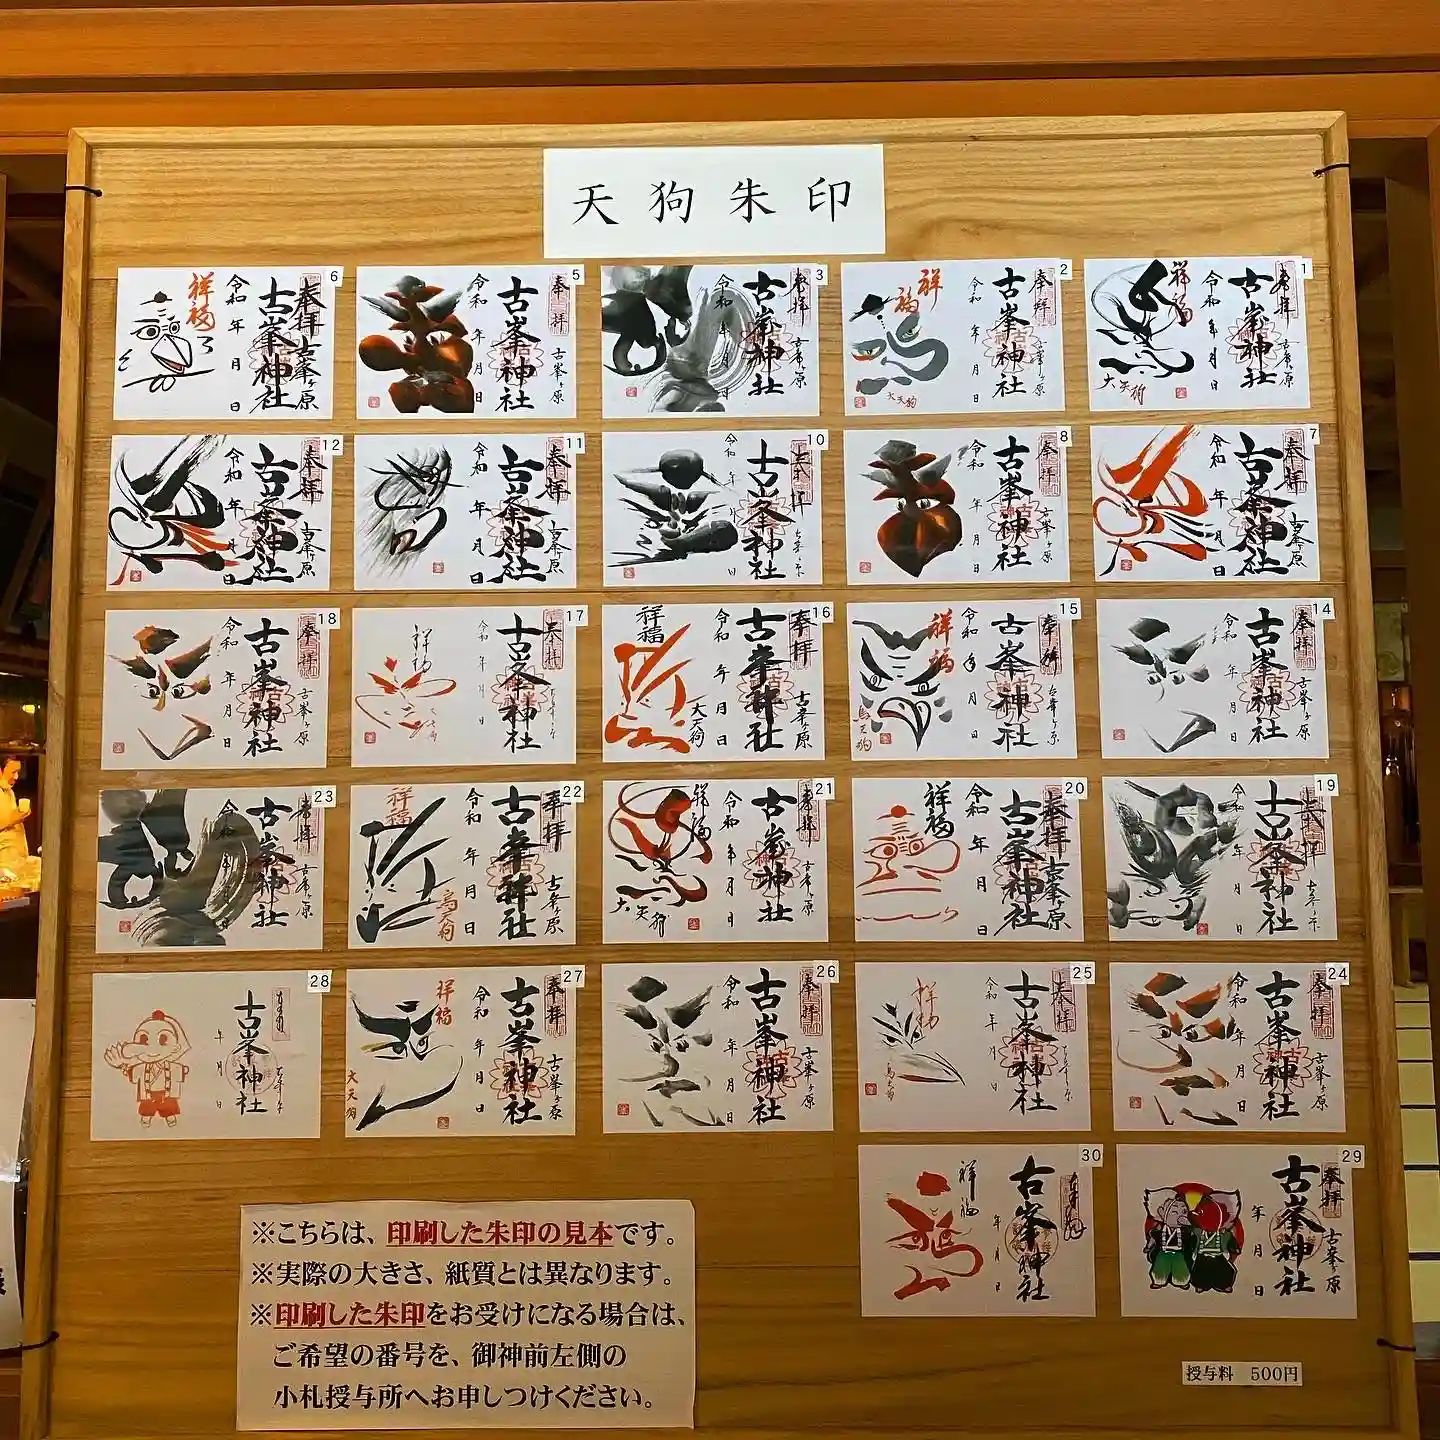 天狗朱印
1
奉拝
古峯神社
古峯ヶ原
令和 年 月 日
祥福
大天狗
2
奉拝
古峯神社
古峯ヶ原
令和 年 月 日
祥福
大天狗
3
奉拝
古峯神社
古峯ヶ原
令和 年 月 日
5
奉拝
古峯神社
古峯ヶ原
令和 年 月 日
6
奉拝
古峯ヶ原
古峯神社
令和 年 月 日
祥福
7
奉拝
古峯神社
古峯ヶ原
令和 年 月 日
8
奉拝
古峯神社
古峯ヶ原
令和 年 月 日
10
奉拝
古峯神社
古峯ヶ原
令和 年 月 日
11
奉拝
古峯神社
古峯ヶ原
令和 年 月 日
12
奉拝
古峯神社
古峯ヶ原
令和 年 月 日
14
奉拝
古峯神社
古峯ヶ原
令和 年 月 日
15
奉拝
古峯神社
古峯ヶ原
令和 年 月 日
祥福
烏天狗
16
奉拝
古峯神社
古峯ヶ原
令和 年 月 日
祥福
大天狗
17
奉拝
古峯神社
令和 年 月 日
祥福
18
奉拝
古峯神社
古峯ヶ原
令和 年 月 日
19
奉拝
古峯神社
古峯ヶ原
令和 年 月 日
20
奉拝
古峯ヶ原
古峯神社
令和 年 月 日
祥福
21
奉拝
古峯神社
古峯ヶ原
令和 年 月 日
祥福
大天狗
22
奉拝
古峯神社
古峯ヶ原
令和 年 月 日
祥福
烏天狗
23
奉拝
古峯神社
古峯ヶ原
令和 年 月 日
24
奉拝
古峯神社
古峯ヶ原
令和 年 月 日
25
奉拝
古峯神社
令和 年 月 日
祥福
26
奉拝
古峯神社
古峯ヶ原
令和 年 月 日
27
奉拝
古峯神社
古峯ヶ原
令和 年 月 日
祥福
大天狗
28
古峯神社
年 月 日
29
奉拝
古峯神社
古峯ヶ原
年 月 日
30
古峯神社
年 月 日
祥福
※こちらは、印刷した朱印の見本です。
※実際の大きさ、紙質とは異なります。
※印刷した朱印をお受けになる場合は、
ご希望の番号を、御神前左側の
小札授与所へお申しつけください。
授与料 500円